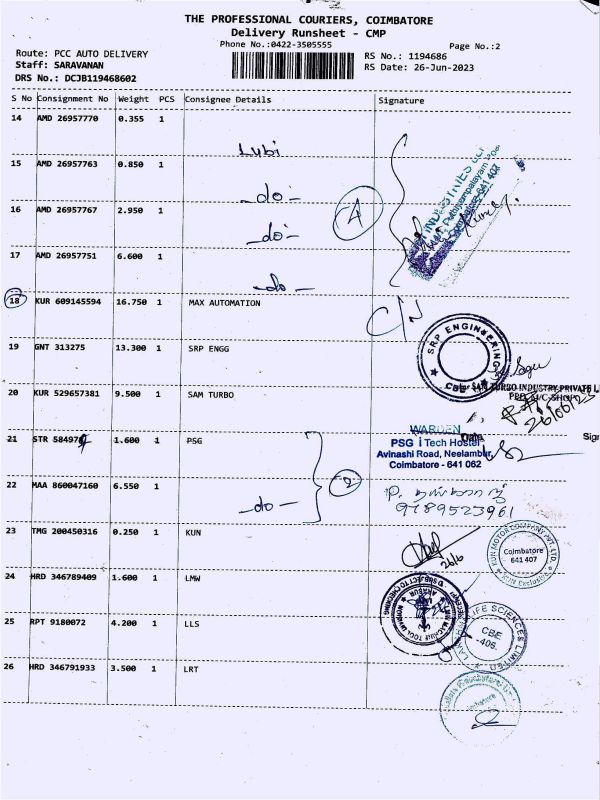 THE PROFESSIONAL COURIERS, COIMBATORE
Delivery Runsheet - CMP
Phone No.:0422-3505555
Page No.:2
Route: PCC AUTO DELIVERY
Staff: SARAVANAN
DRS No.: DCJB119468602
RS No.: 1194686
RS Date: 26-Jun-2023
S No Consignment No Weight PCS Consignee Details Signature
14 AMD 26957770 0.355 1 Lubi
15 AMD 26957763 0.850 1 -do-
16 AMD 26957767 2.950 1 -do-
17 AMD 26957751 6.600 1 -do-
4
INDUSTRIES
Coimbatore-641 407
18 KUR 609145594 16.750 1 MAX AUTOMATION C/N
19 GNT 313275 13.300 1 SRP ENGG
SRP ENGINEERING
20 KUR 529657381 9.500 1 SAM TURBO
SAM TURBO INDUSTRY PRIVATE L
26/06/23
21 STR 584979 1.600 1 PSG
WARDEN
PSG iTech Hostel
Avinashi Road, Neelambur,
Coimbatore - 641 062
Date
Sig
22 MAA 860047160 6.550 1 -do-
2
9789523961
23 TMG 200450316 0.250 1 KUN
26/6
KUN MOTOR COMPANY PVT. LTD.
Coimbatore
641 407
KUN Exclusive
24 HRD 346789409 1.600 1 LMW
25 RPT 9180072 4.200 1 LLS
LIFE SCIENCES LIMITED
CBE
-406.
26 HRD 346791933 3.500 1 LRT